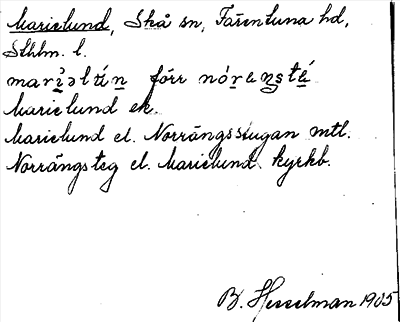 Marielund, Skå sn, Färentuna hd,
Sthlm. l.
marìəlún förr nóręnsté
Marielund ek.
Marielund el. Norrängsstugan mtl.
Norrängsteg el. Marielund kyrkb.
B. Hesselman 1905